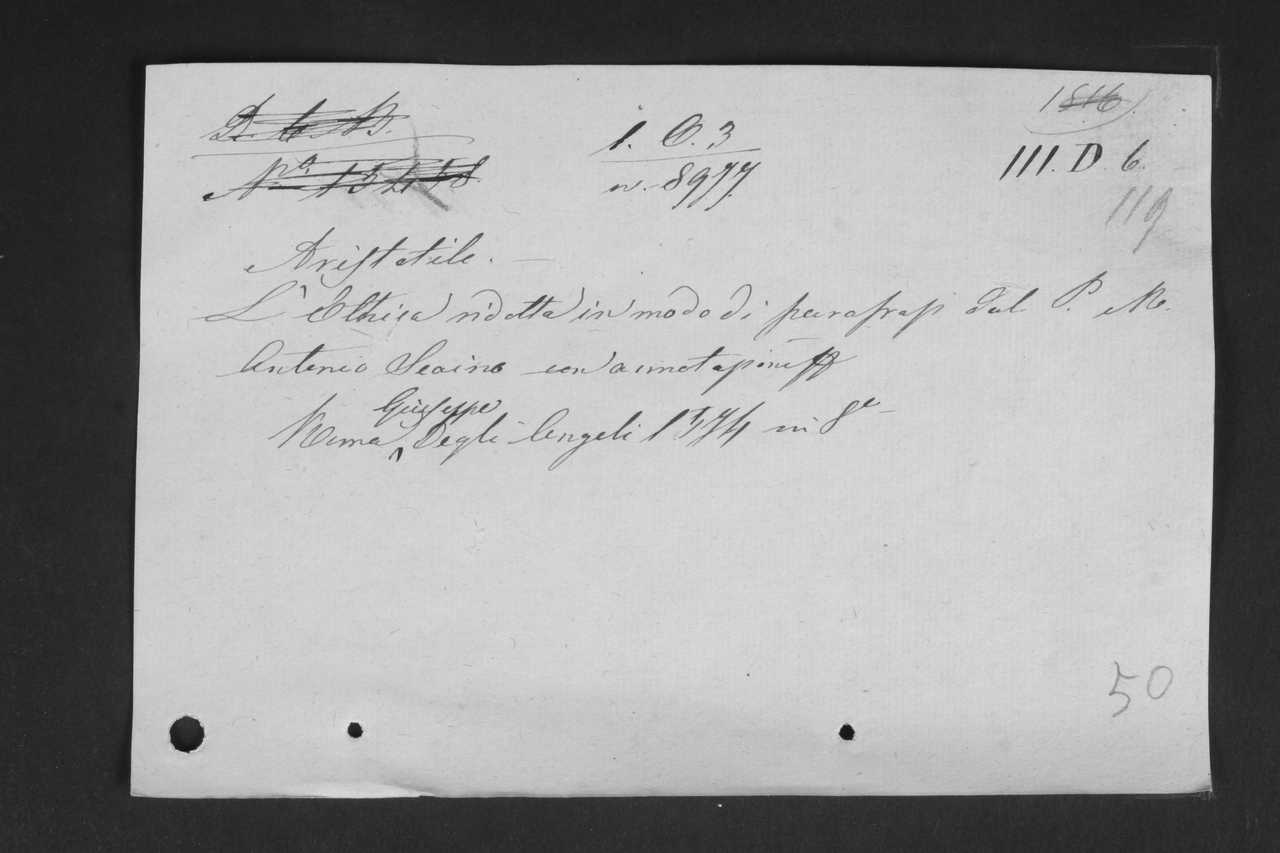 1816
1. O. 3
III. D. 6.
n. 8977.
119
Aristotile. —
L'Ethica ridotta in modo di parafrasi dal P. M.
Antonio Scaino con annotazioni
Giuseppe
Roma degli Angeli 1574 in 8º
50